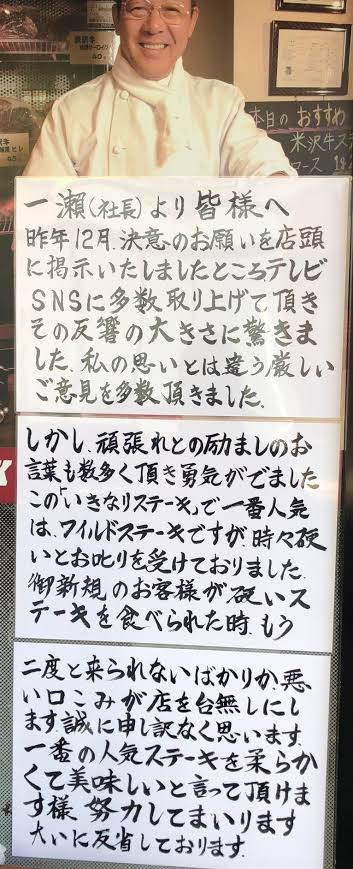 本日のおすすめ
米沢牛ス
コース
一瀬(社長)より皆様へ
昨年12月、決意のお願いを店頭
に掲示いたしましたところ、テレビ
SNSに多数取り上げて頂き
その反響の大きさに驚きま
した。私の思いとは違う厳しい
ご意見を多数頂きました。
しかし、頑張れとの励ましのお
言葉も数多く頂き勇気がでました
この「いきなりステーキ」で一番人気
は、ワイルドステーキですが、時々硬
いとお叱りを受けておりました。
御新規のお客様が、硬いス
テーキを食べられた時、もう
二度と来られないばかりか、悪
い口こみが店を台無しにし
ます。誠に申し訳なく思います。
一番の人気ステーキを柔らか
くて美味しいと言って頂けま
す様、努力してまいります
大いに反省しております。